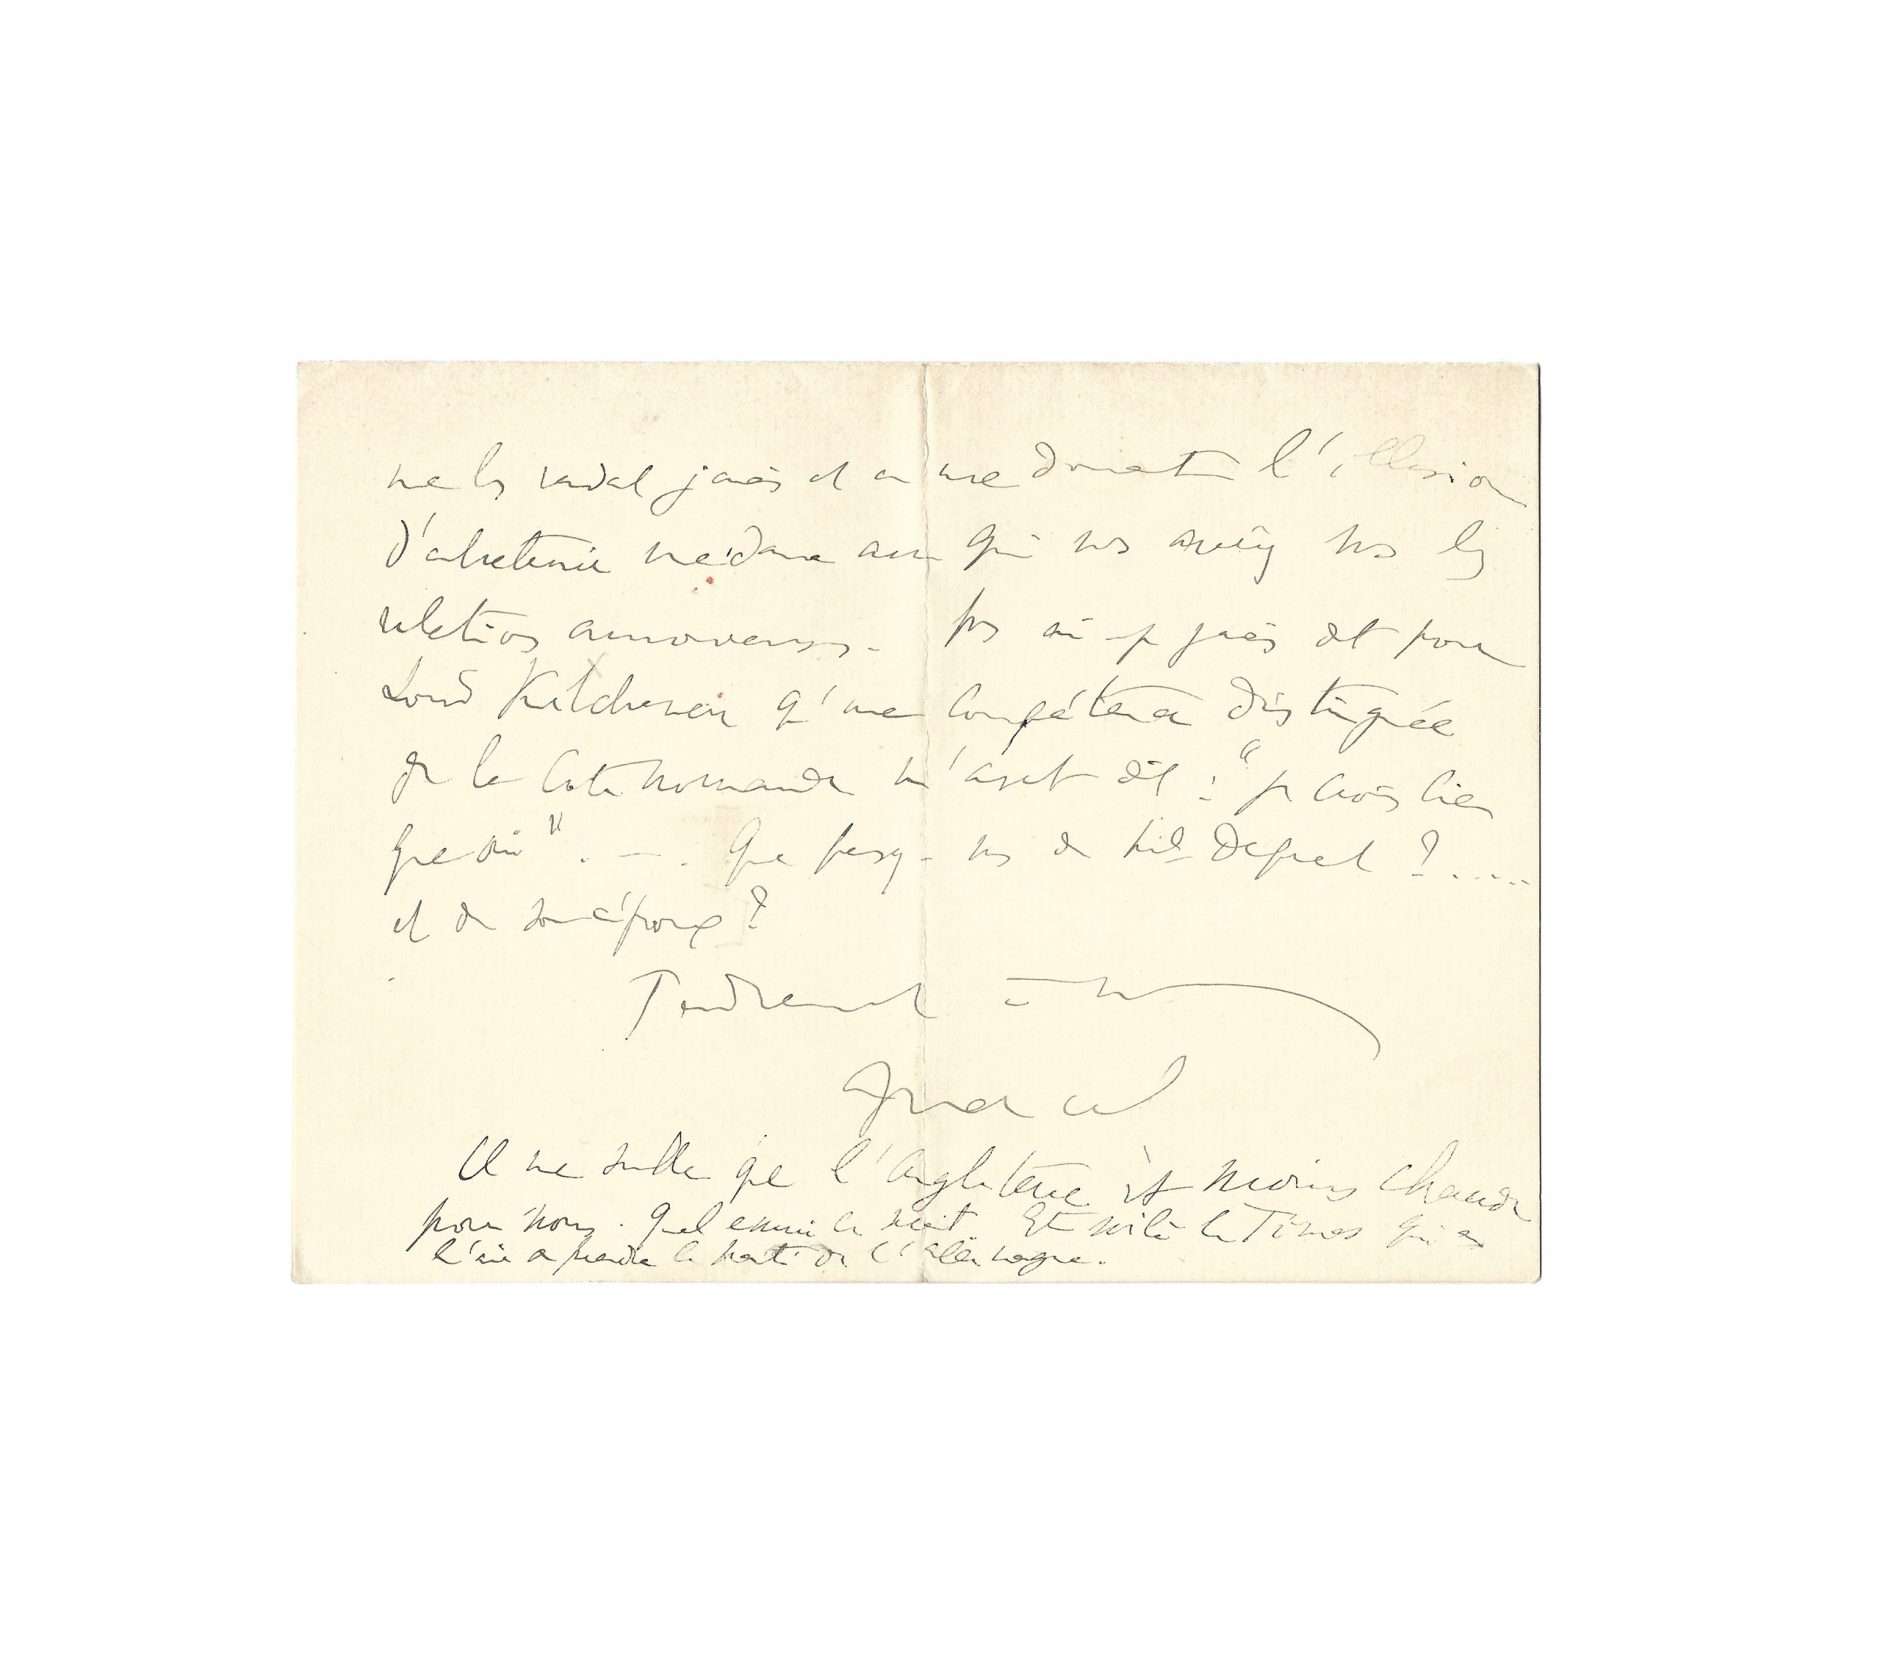 ne les rendait jamais et en me donnant l'illusion
d'entretenir une dame avec qui vous auriez tous les
relations amoureuses. pas si je jamais dit pour
Lord Kitchener qu'une compétence distinguée
de la Côte normande m'avait dit : "je crois bien
que oui". — . Que pensez-vous de Depret ? .....
et de son époux ?
Tendrement à vous
Marcel
Il me semble que l'Angleterre est moins chaude
pour nous. Quel ennui ce serait Et voilà le Times qui a
l'air de prendre le parti de l'Allemagne.